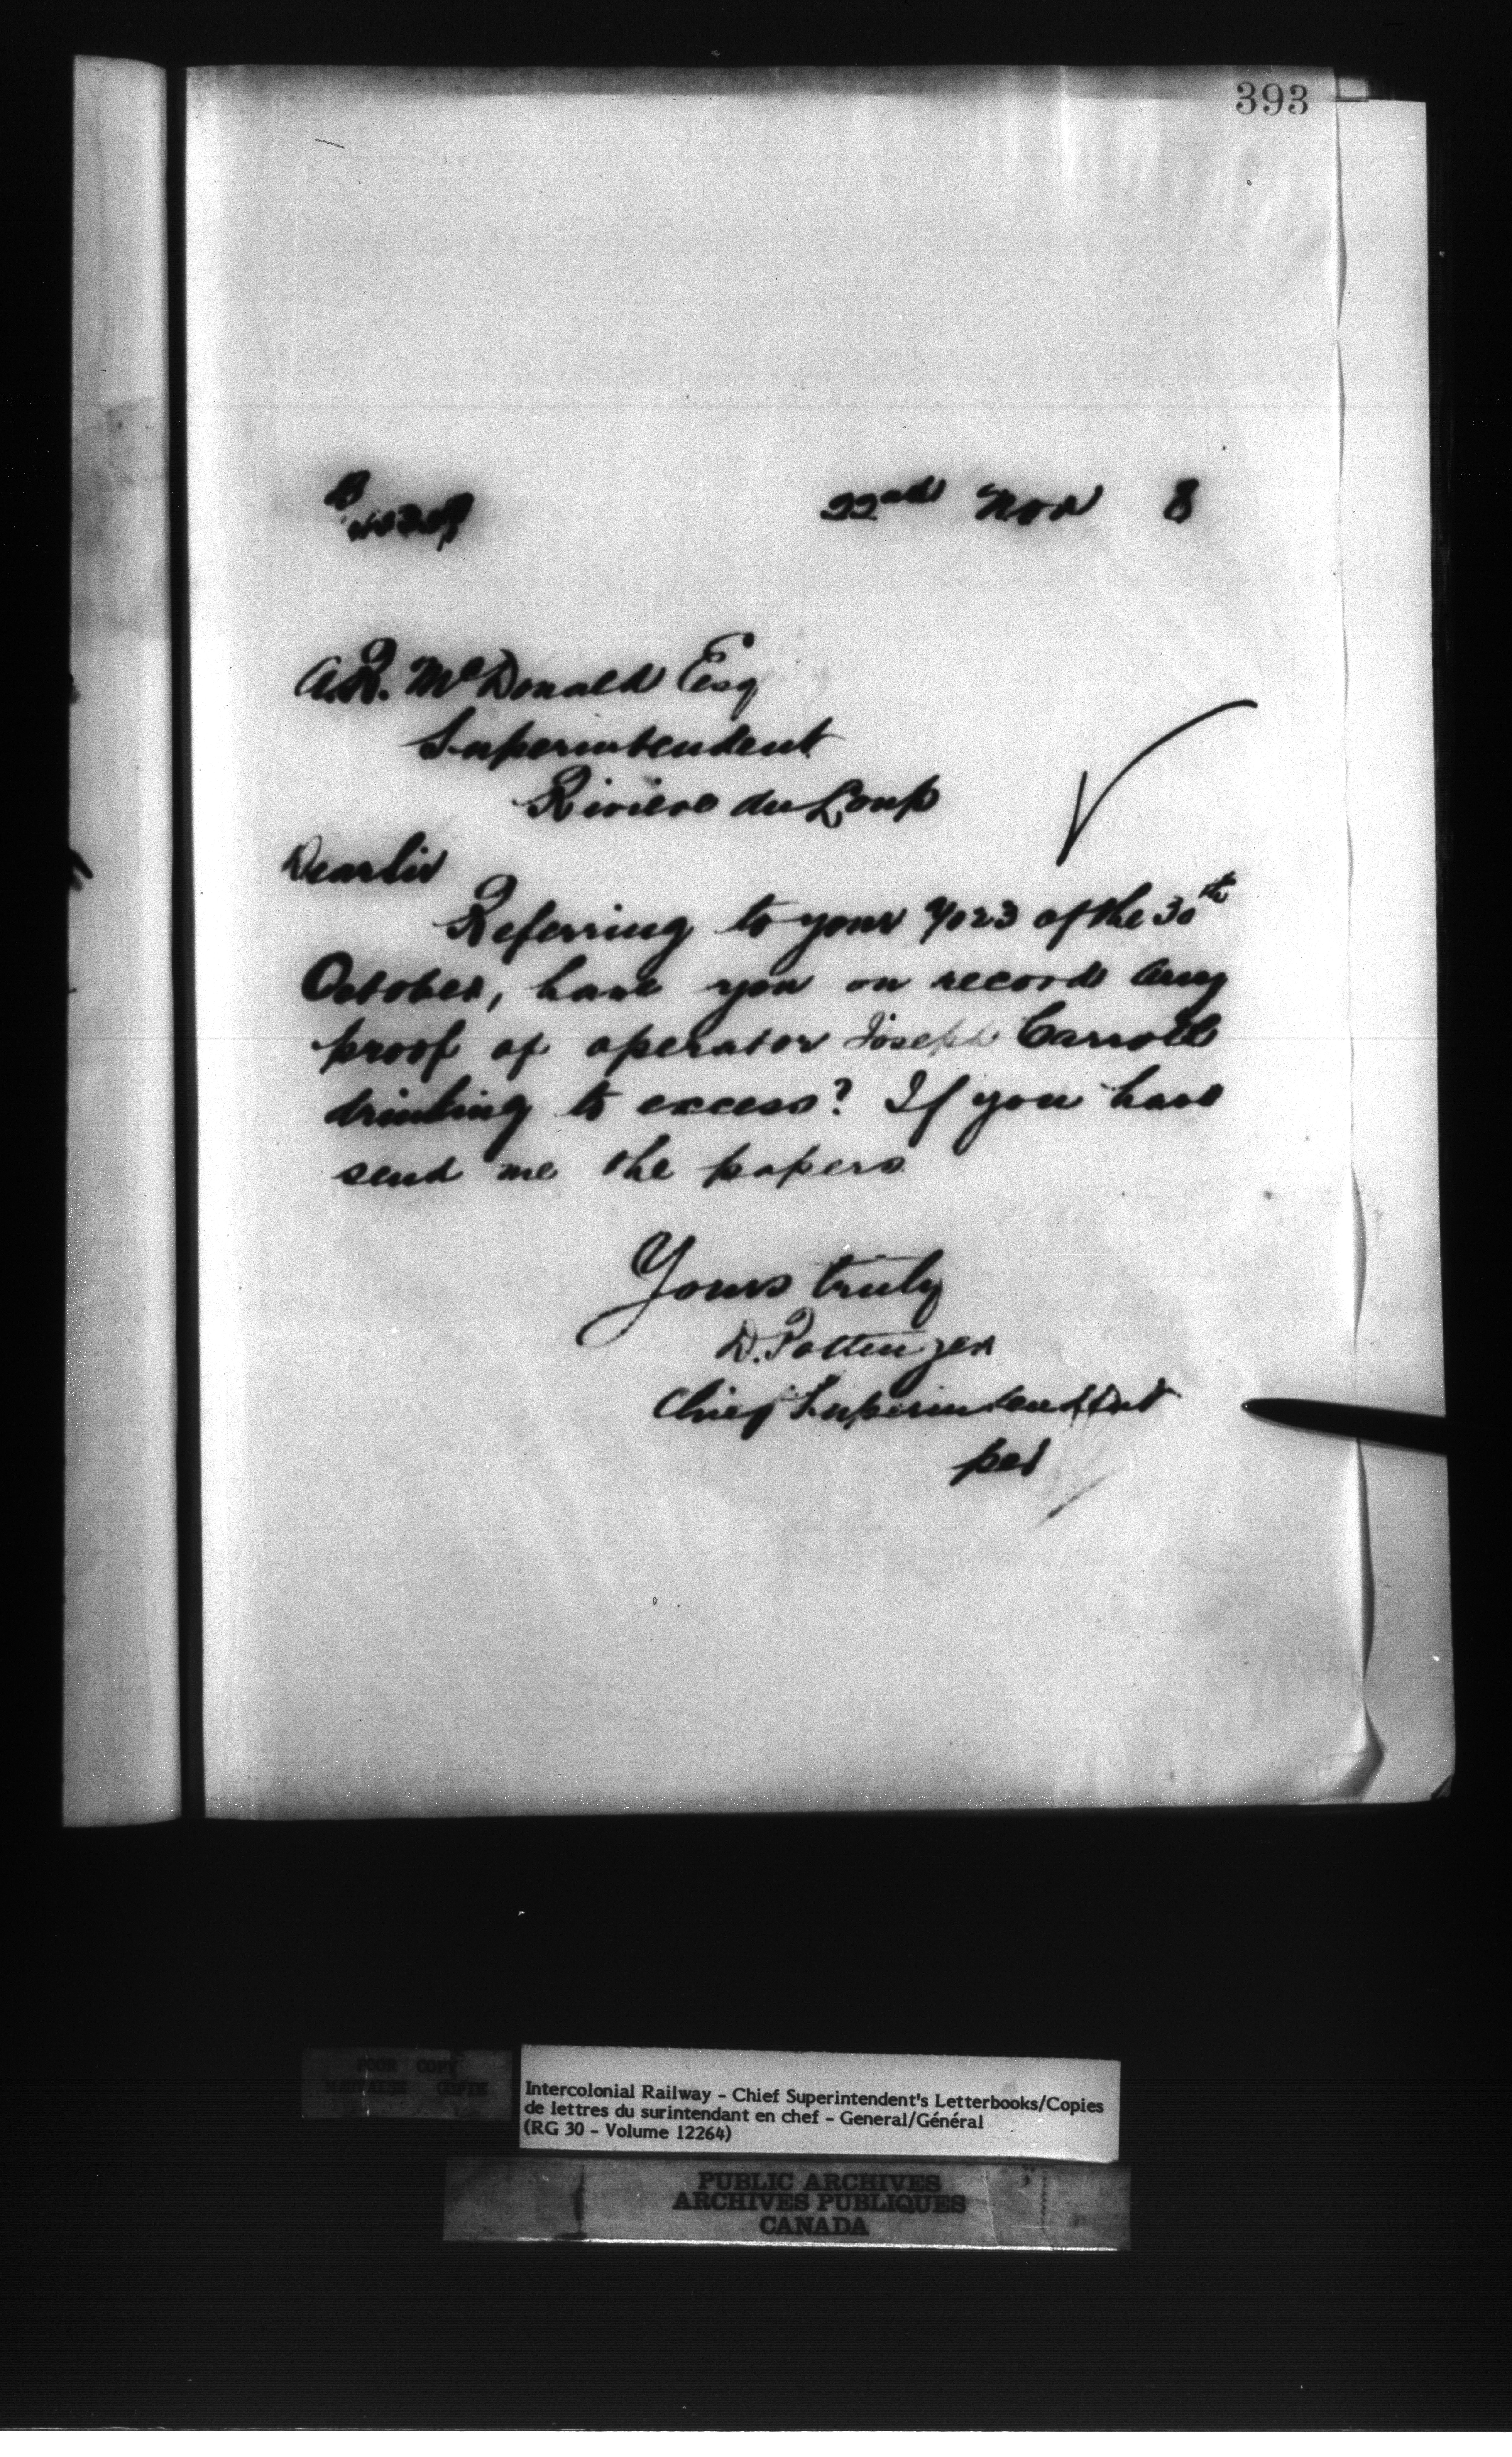 393
22nd Nov 8
A.R. McDonald Esq
Superintendent
Riviere du Loup
Dear Sir
Referring to your 4023 of the 30th
October, have you on record any
proof of operator Joseph Carroll
drinking to excess? If you have
send me the papers
Yours truly
D. Pottinger
Chief Superintendent
per
POOR COPY
MAUVAISE COPIE
Intercolonial Railway - Chief Superintendent's Letterbooks/Copies
de lettres du surintendant en chef - General/Général
(RG 30 - Volume 12264)
PUBLIC ARCHIVES
ARCHIVES PUBLIQUES
CANADA